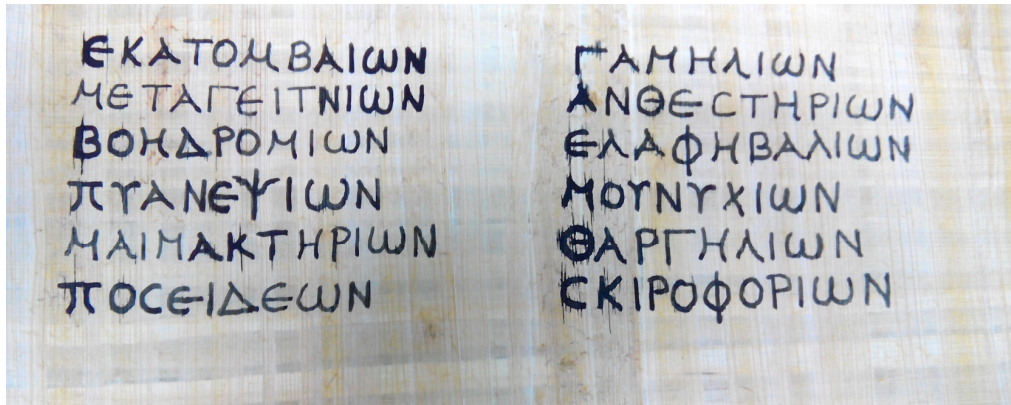 ΕΚΑΤΟΜΒΑΙΩΝ
ΜΕΤΑΓΕΙΤΝΙΩΝ
ΒΟΗΔΡΟΜΙΩΝ
ΠΥΑΝΕΨΙΩΝ
ΜΑΙΜΑΚΤΗΡΙΩΝ
ΠΟϹΕΙΔΕΩΝ
ΓΑΜΗΛΙΩΝ
ΑΝΘΕϹΤΗΡΙΩΝ
ΕΛΑΦΗΒΑΛΙΩΝ
ΜΟΥΝΥΧΙΩΝ
ΘΑΡΓΗΛΙΩΝ
ϹΚΙΡΟΦΟΡΙΩΝ